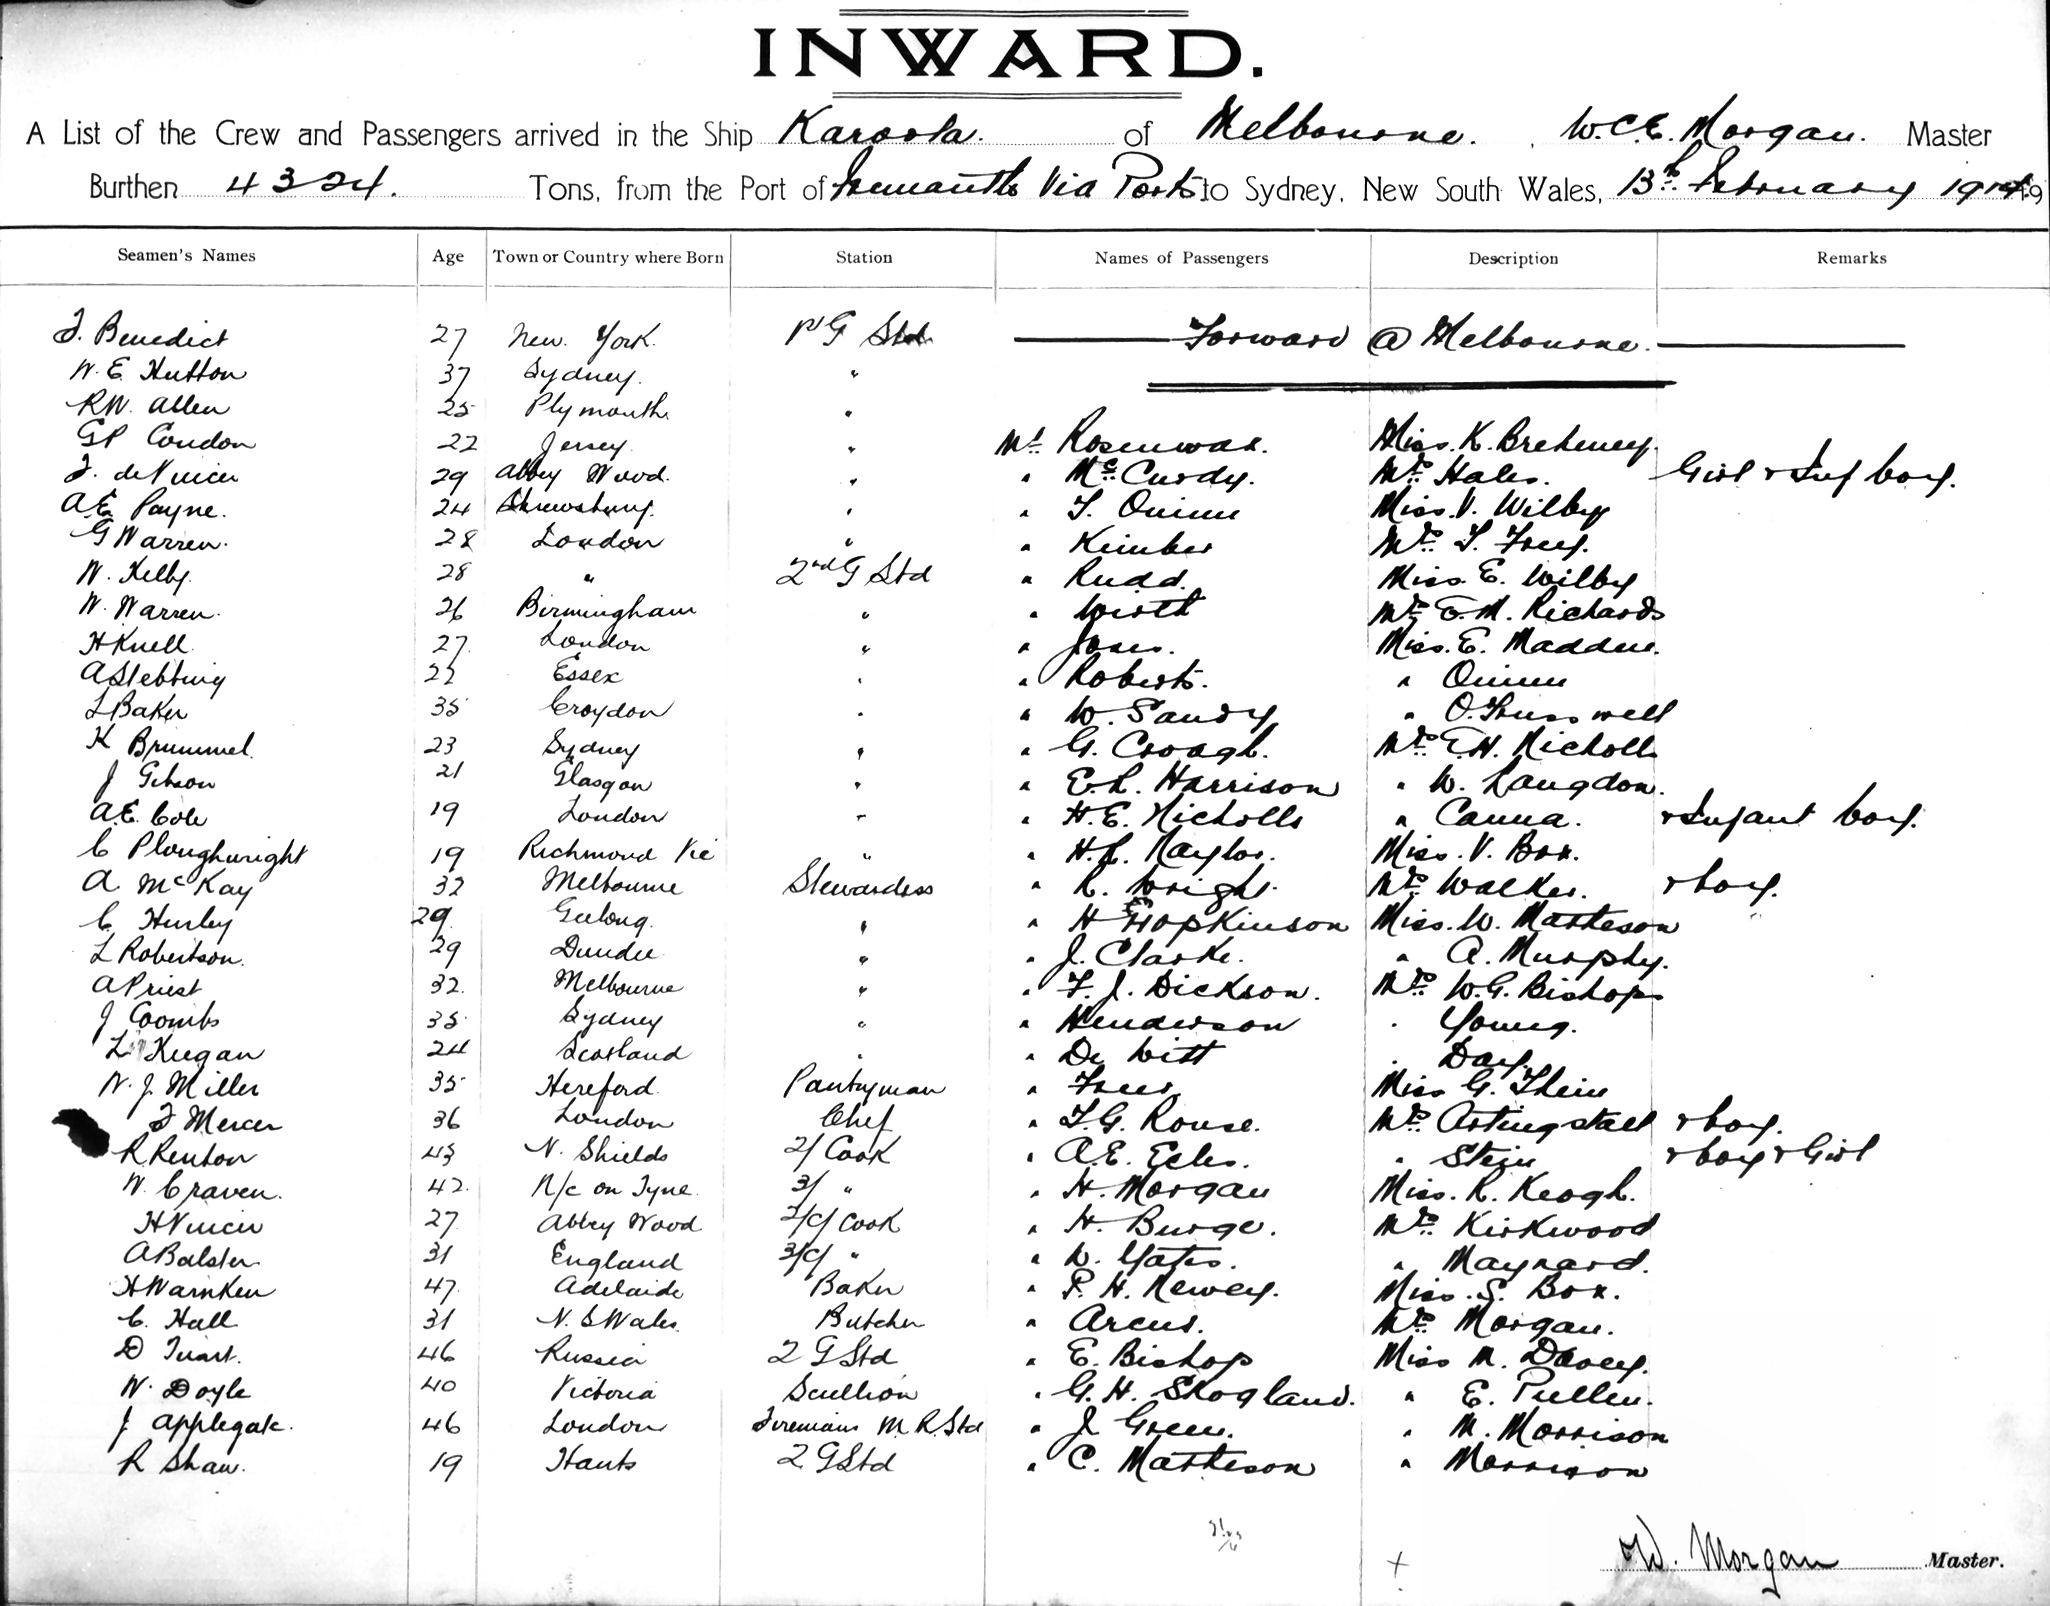 INWARD.
A List of the Crew and Passengers arrived in the Ship Karoola. of Melbourne. W.C.E. Morgan. Master
Burthen 4324. Tons, from the Port of Fremantle Via Ports to Sydney, New South Wales, 13th February 1914
Seamen's Names Age Town or Country where Born Station Names of Passengers Description Remarks
F. Benedict 27 New York. 1st G Std Forward @ Melbourne.
W. E. Hutton 37 Sydney. "
R.W. Allen 25 Plymouth "
G P Condon 22 Jersey. " Mr Rosenwax. Miss. K. Breheney.
F. de Vuicer 29 Abbey Wood. " " McCurdy. Mrs Hales. Girl & Inf boy.
A.E. Payne. 24 Shrewsbury. " " T. Quinn Miss. V. Wilby
G Warren. 28 London " " Kimber Mrs T. Frey.
W. Kelby. 28 " 2nd G Std " Rudd. Miss. E. Wilby
W. Warren. 26 Birmingham " " Wirth Mrs E. M. Richards
H Knell 27 London " " Jones. Miss. E. Madden.
A Stebbing 22 Essex " " Roberts. " Quinn
L Baker 35 Croydon " " W. Sandy " O. Trusswell
K Brummel. 23 Sydney " " G. Croagh. Mrs E.H. Nicholls
J Gibson 21 Glasgow " " E.L. Harrison " W. Langdon.
A.E. Cole 19 London " " H.E. Nicholls " Canna. & Infant boy.
C Ploughwright 19 Richmond Vic " " H.L. Naylor. Miss. V. Box.
A McKay 32 Melbourne Stewardess " R. Wright. Mrs Walker. & boy.
C. Hurley 29. Geelong. " " H E Hopkinson Miss. W. Matheson
L Robertson. 29 Dundee " " J. Clarke. " A. Murphy.
A Priest 32. Melbourne " " F. J. Dickson. Mrs W.G. Bishop
J Coombs 35 Sydney " " Henderson " Young.
L Keegan 24 Scotland " " De Witt " Day.
W. J. Miller 35 Hereford. Pantryman " Freer Miss G. Thein
F Mercer 36 London Chef " T.G. Rouse. Mrs Astingstall & boy.
R Renton 43 N. Shields 2/ Cook " A.E. Eeles. " Stein & boy & Girl
W. Craven. 42. N/c on Tyne. 3/ " " H. Morgan Miss. R. Keogh.
H Vuicer 27. Abbey Wood 2/C/ Cook " H. Burge. Mrs Kirkwood
A Balster 31 England 3/C/ " " W. Yates. " Maynard.
H Warnken 47. Adelaide Baker " P. H. Newey. Miss. S. Box.
C. Hall 31 N. S Wales. Butcher " Arcus. Mrs Morgan.
D Tuart. 46 Russia 2 G Std " E. Bishop Miss M. Davey.
W. Doyle 40 Victoria Scullion " G. H. Skogland. " E. Pullen.
J Applegate. 46 London Firemans M. R. Std " J. Green. " M. Morrison
R Shaw. 19 Hants 2 G Std " C. Matheson " Morrison
W. Morgan Master.